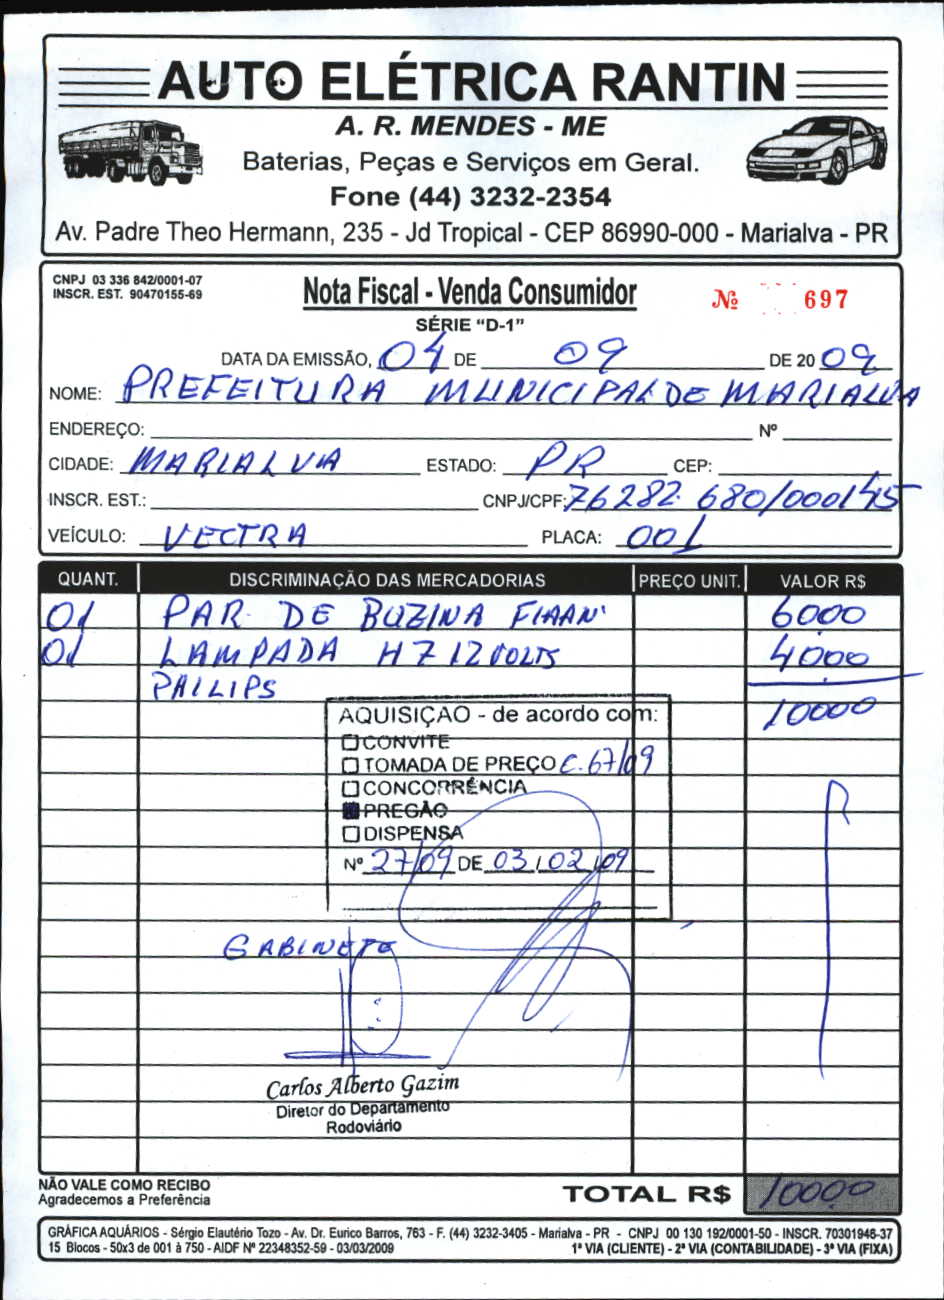 AUTO ELÉTRICA RANTIN
A. R. MENDES - ME
Baterias, Peças e Serviços em Geral.
Fone (44) 3232-2354
Av. Padre Theo Hermann, 235 - Jd Tropical - CEP 86990-000 - Marialva - PR
CNPJ 03 336 842/0001-07
INSCR. EST. 90470155-69
Nota Fiscal - Venda Consumidor
Nº 697
SÉRIE "D-1"
DATA DA EMISSÃO, 04 DE 09 DE 20 09
NOME: PREFEITURA MUNICIPAL DE MARIALVA
ENDEREÇO: Nº
CIDADE: MARIALVA ESTADO: PR CEP:
INSCR. EST.: CNPJ/CPF: 76282.680/0001 45
VEÍCULO: VECTRA PLACA: 001
QUANT. DISCRIMINAÇÃO DAS MERCADORIAS PREÇO UNIT. VALOR R$
01 PAR DE BUZINA 6000
01 LAMPADA H7 12 VOLTS 4000
PHILIPS
10000
AQUISIÇAO - de acordo com:
CONVITE
TOMADA DE PREÇO C. 67/09
CONCORRÊNCIA
PREGÃO
DISPENSA
Nº 27/09 DE 03/02/09
GABINETE
Carlos Alberto Gazim
Diretor do Departamento
Rodoviário
NÃO VALE COMO RECIBO
Agradecemos a Preferência
TOTAL R$ 10000
GRÁFICA AQUÁRIOS - Sérgio Elautério Tozo - Av. Dr. Eurico Barros, 763 - F. (44) 3232-3405 - Marialva - PR - CNPJ 00 130 192/0001-50 - INSCR. 70301946-37
15 Blocos - 50x3 de 001 à 750 - AIDF Nº 22348352-59 - 03/03/2009 1ª VIA (CLIENTE) - 2ª VIA (CONTABILIDADE) - 3ª VIA (FIXA)